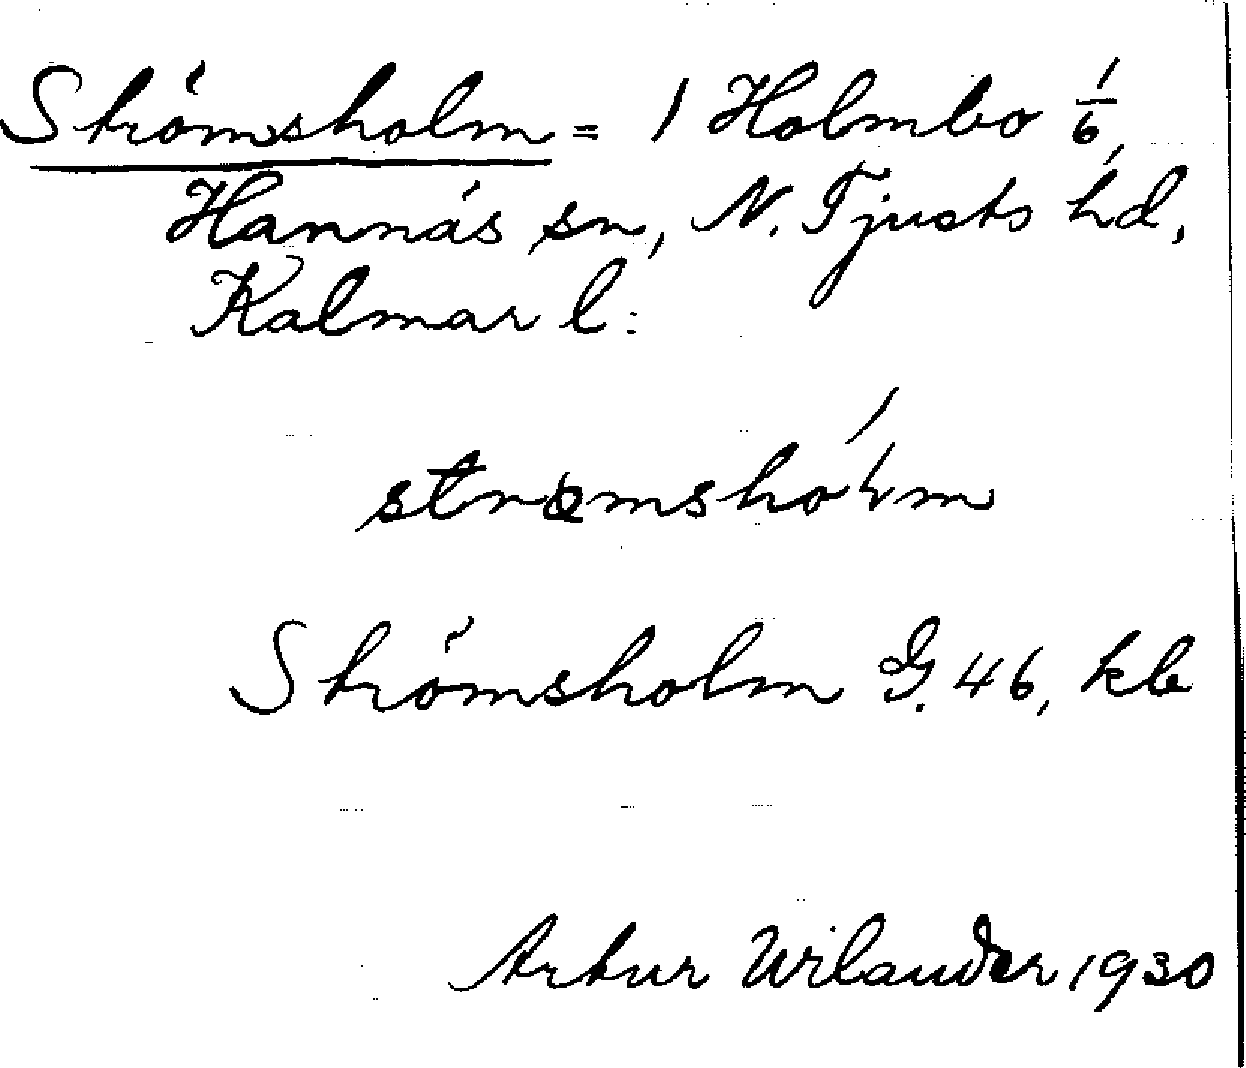 Strömsholm = 1 Holmbo 1/6,
Hannäs sn, N. Tjusts hd,
Kalmar l:
Strömsholm G. 46, kb
Artur Wilander 1930